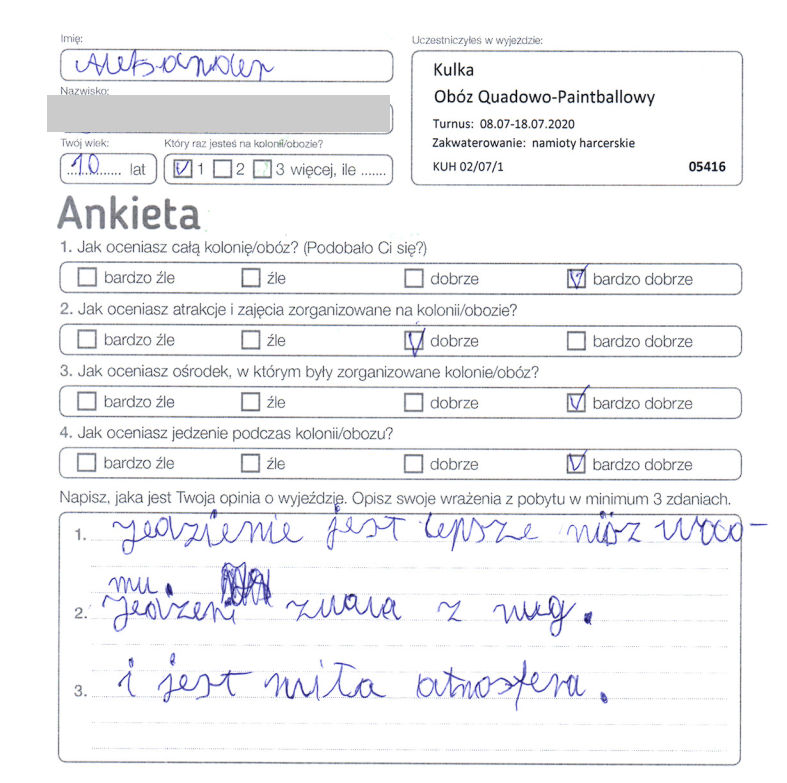 Imię:
Aleksander
Uczestniczyłeś w wyjeździe:
Kulka
Obóz Quadowo-Paintballowy
Turnus: 08.07-18.07.2020
Zakwaterowanie: namioty harcerskie
KUH 02/07/1 05416
Nazwisko:
Twój wiek: Który raz jesteś na kolonii/obozie?
10 lat 1 2 3 więcej, ile .......
Ankieta
1. Jak oceniasz całą kolonię/obóz? (Podobało Ci się?)
bardzo źle źle dobrze bardzo dobrze
2. Jak oceniasz atrakcje i zajęcia zorganizowane na kolonii/obozie?
bardzo źle źle dobrze bardzo dobrze
3. Jak oceniasz ośrodek, w którym były zorganizowane kolonie/obóz?
bardzo źle źle dobrze bardzo dobrze
4. Jak oceniasz jedzenie podczas kolonii/obozu?
bardzo źle źle dobrze bardzo dobrze
Napisz, jaka jest Twoja opinia o wyjeździe. Opisz swoje wrażenia z pobytu w minimum 3 zdaniach.
1. jedzienie jest lepsze niż w
mu.
2. jedzeni zwala z nug.
3. i jest miła atmosfera.